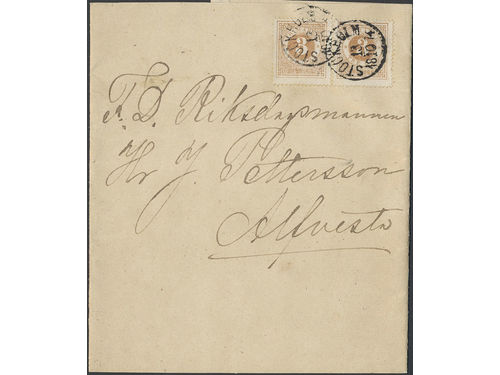 STOCKHOLM
F. D. Riksdagsmannen
Hr J. Pettersson
Alfvesta